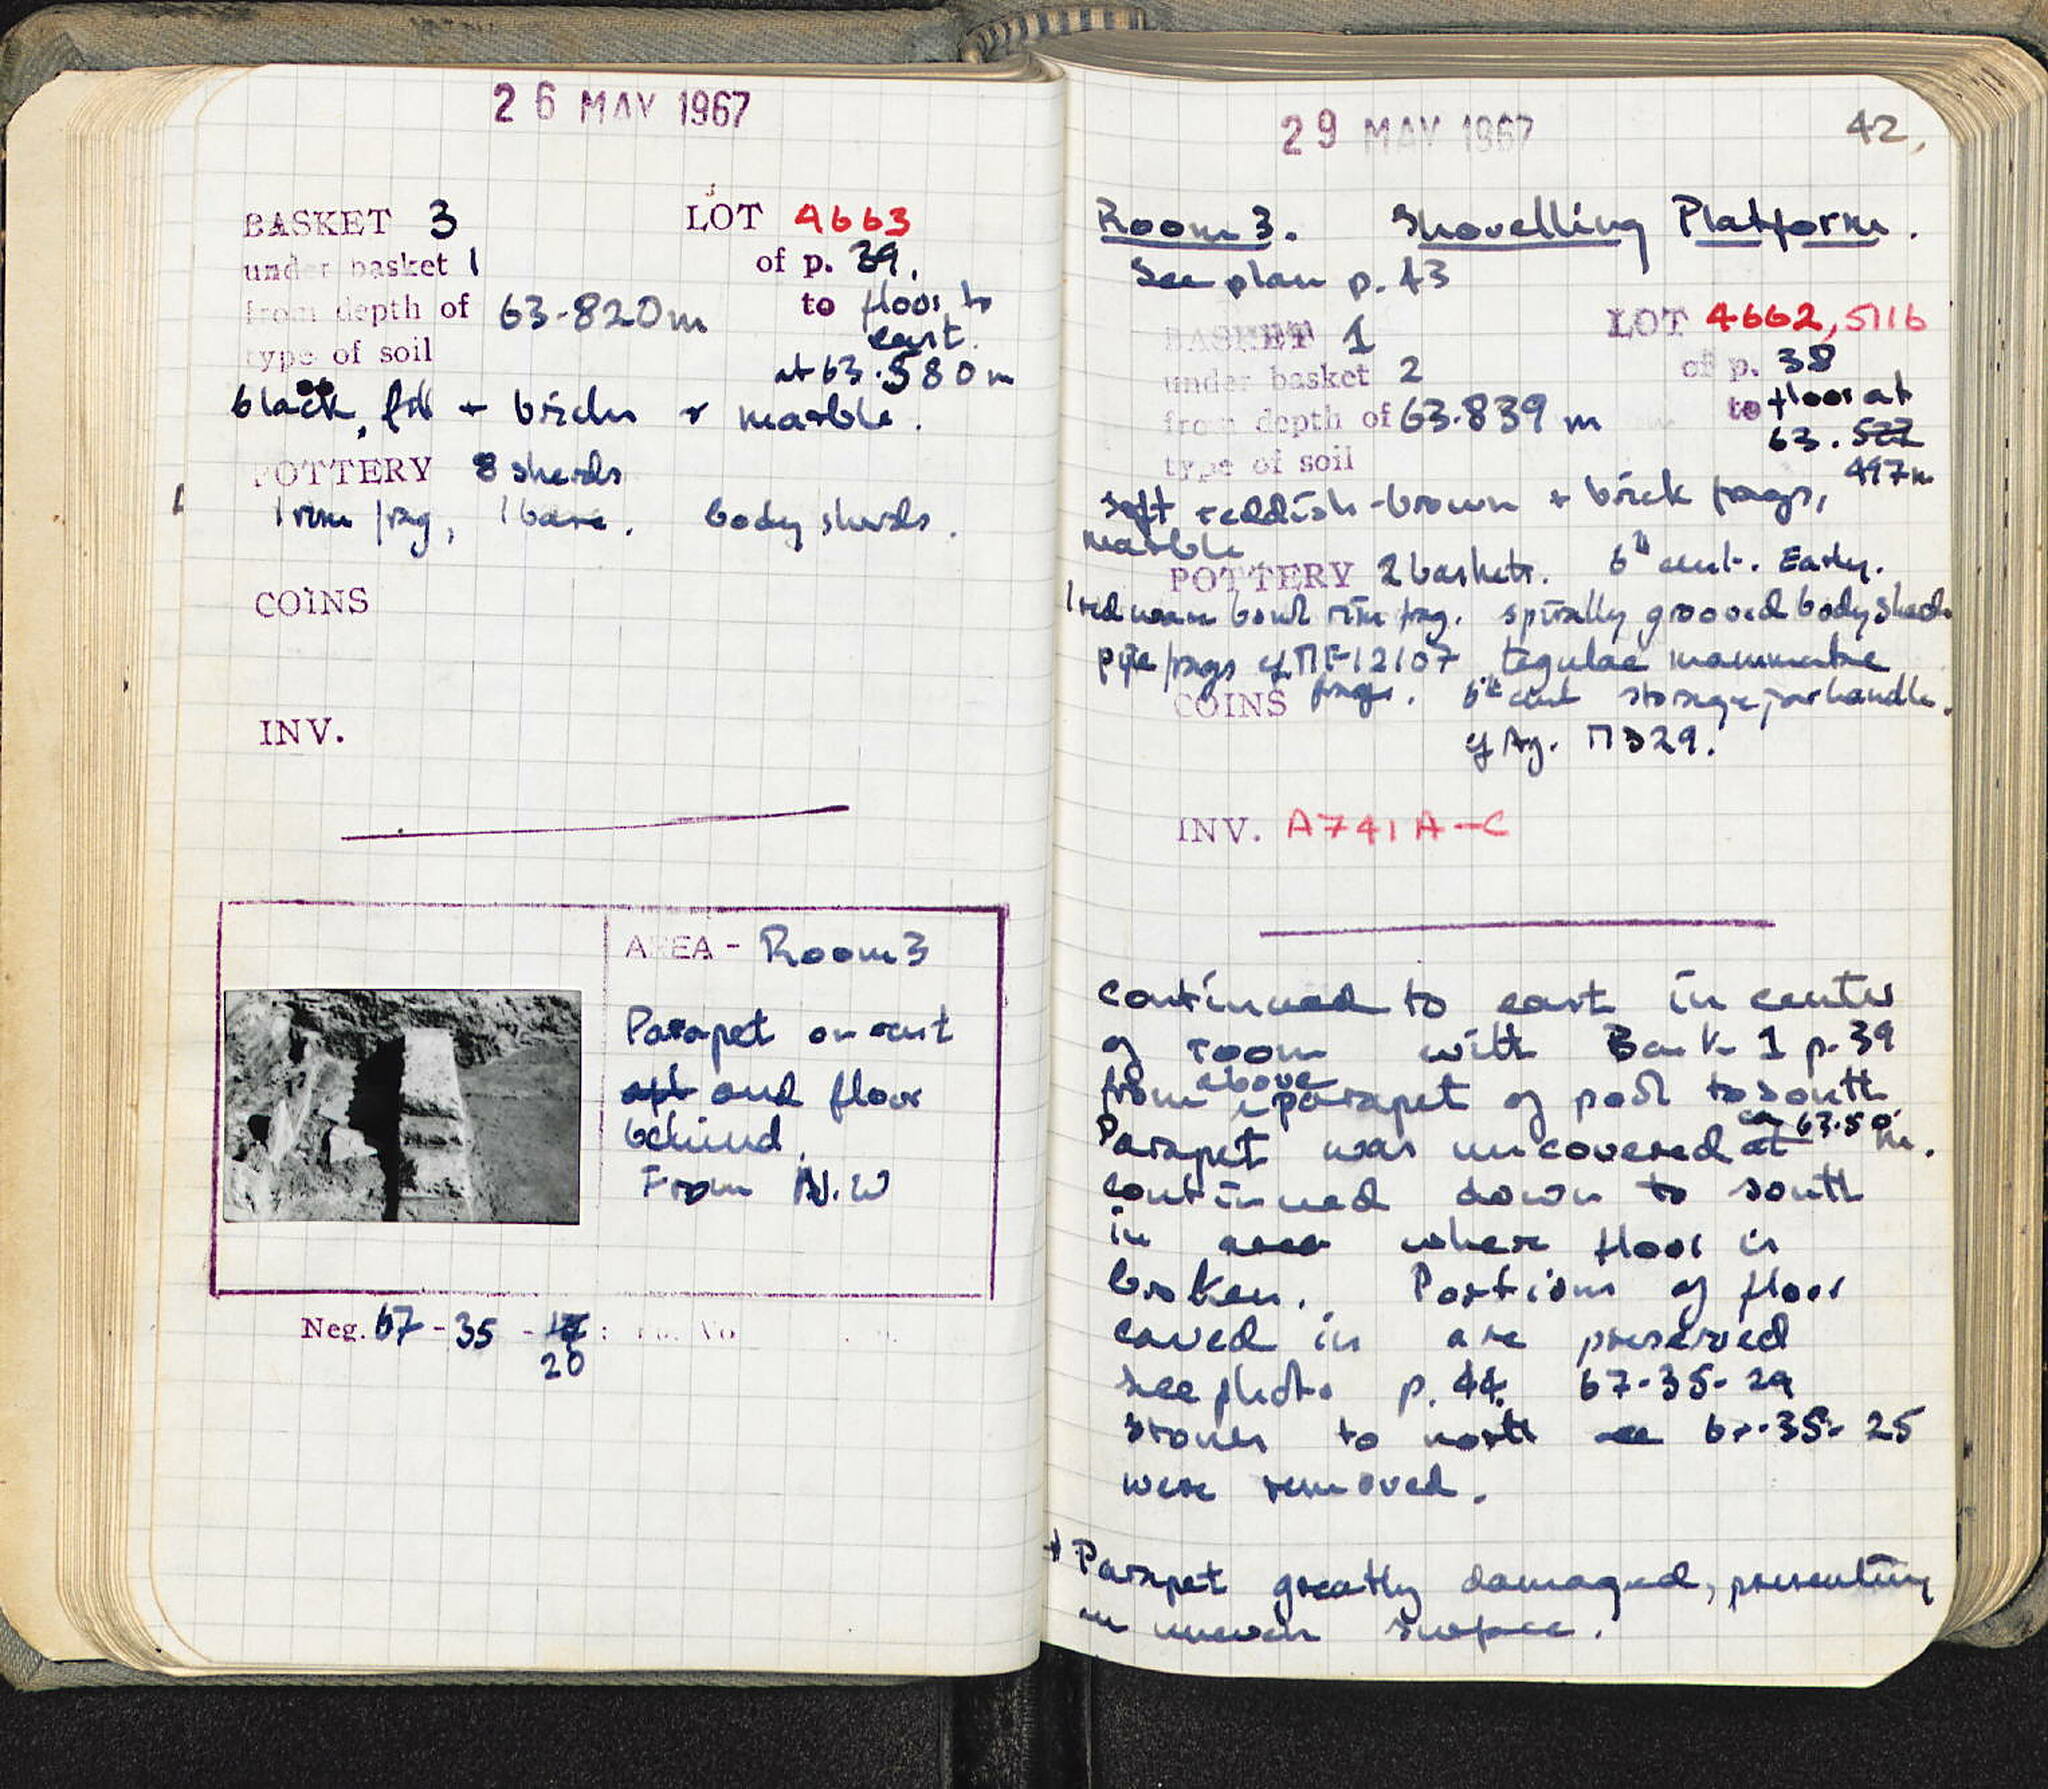 26 MAY 1967
BASKET 3 LOT 4663
under basket 1 of p. 39.
from depth of 63.820m to floor to
east.
type of soil at 63.580m
black, fill + bricks + marble.
POTTERY 8 sherds
1 rim frag, 1 base. body sherds.
COINS
INV.
AREA - Room 3
Parapet on east
and floor
behind.
From N.W
Neg. 67-35-
20
29 MAY 1967 42,
Room 3. Shovelling Platform.
See plan p. 43
BASKET 1 LOT 4662, 5116
under basket 2 of p. 38
from depth of 63.839 m to floor at
63.522
type of soil 497m
soft reddish-brown + brick frags,
marble
POTTERY 2 baskets. 6th cent. Early.
1 red ware bowl rim frag. spirally grooved body sherds
pipe frags cf. MF 12107 tegulae mammatae
COINS frags. 6th cent storage jar handle.
cf Ag. M329.
INV. A741A-C
continued to east in center
of room with Bask 1 p. 39
above
from parapet of pool to south
ca 63.50
Parapet was uncovered at m.
continued down to south
in area where floor is
broken. Portions of floor
caved in are preserved
see photo p. 44. 67-35-29
stones to north 67-35-25
were removed.
+ Parapet greatly damaged, presenting
an uneven surface.